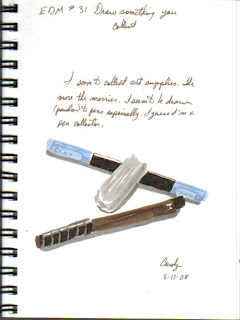 EDM # 31 Draw something you
collect
I seem to collect art supplies. The
more the merrier. I seem to be drawn
(pardon) to pens especially. I guess I'm a
pen collector.
Carolyn
8-17-08